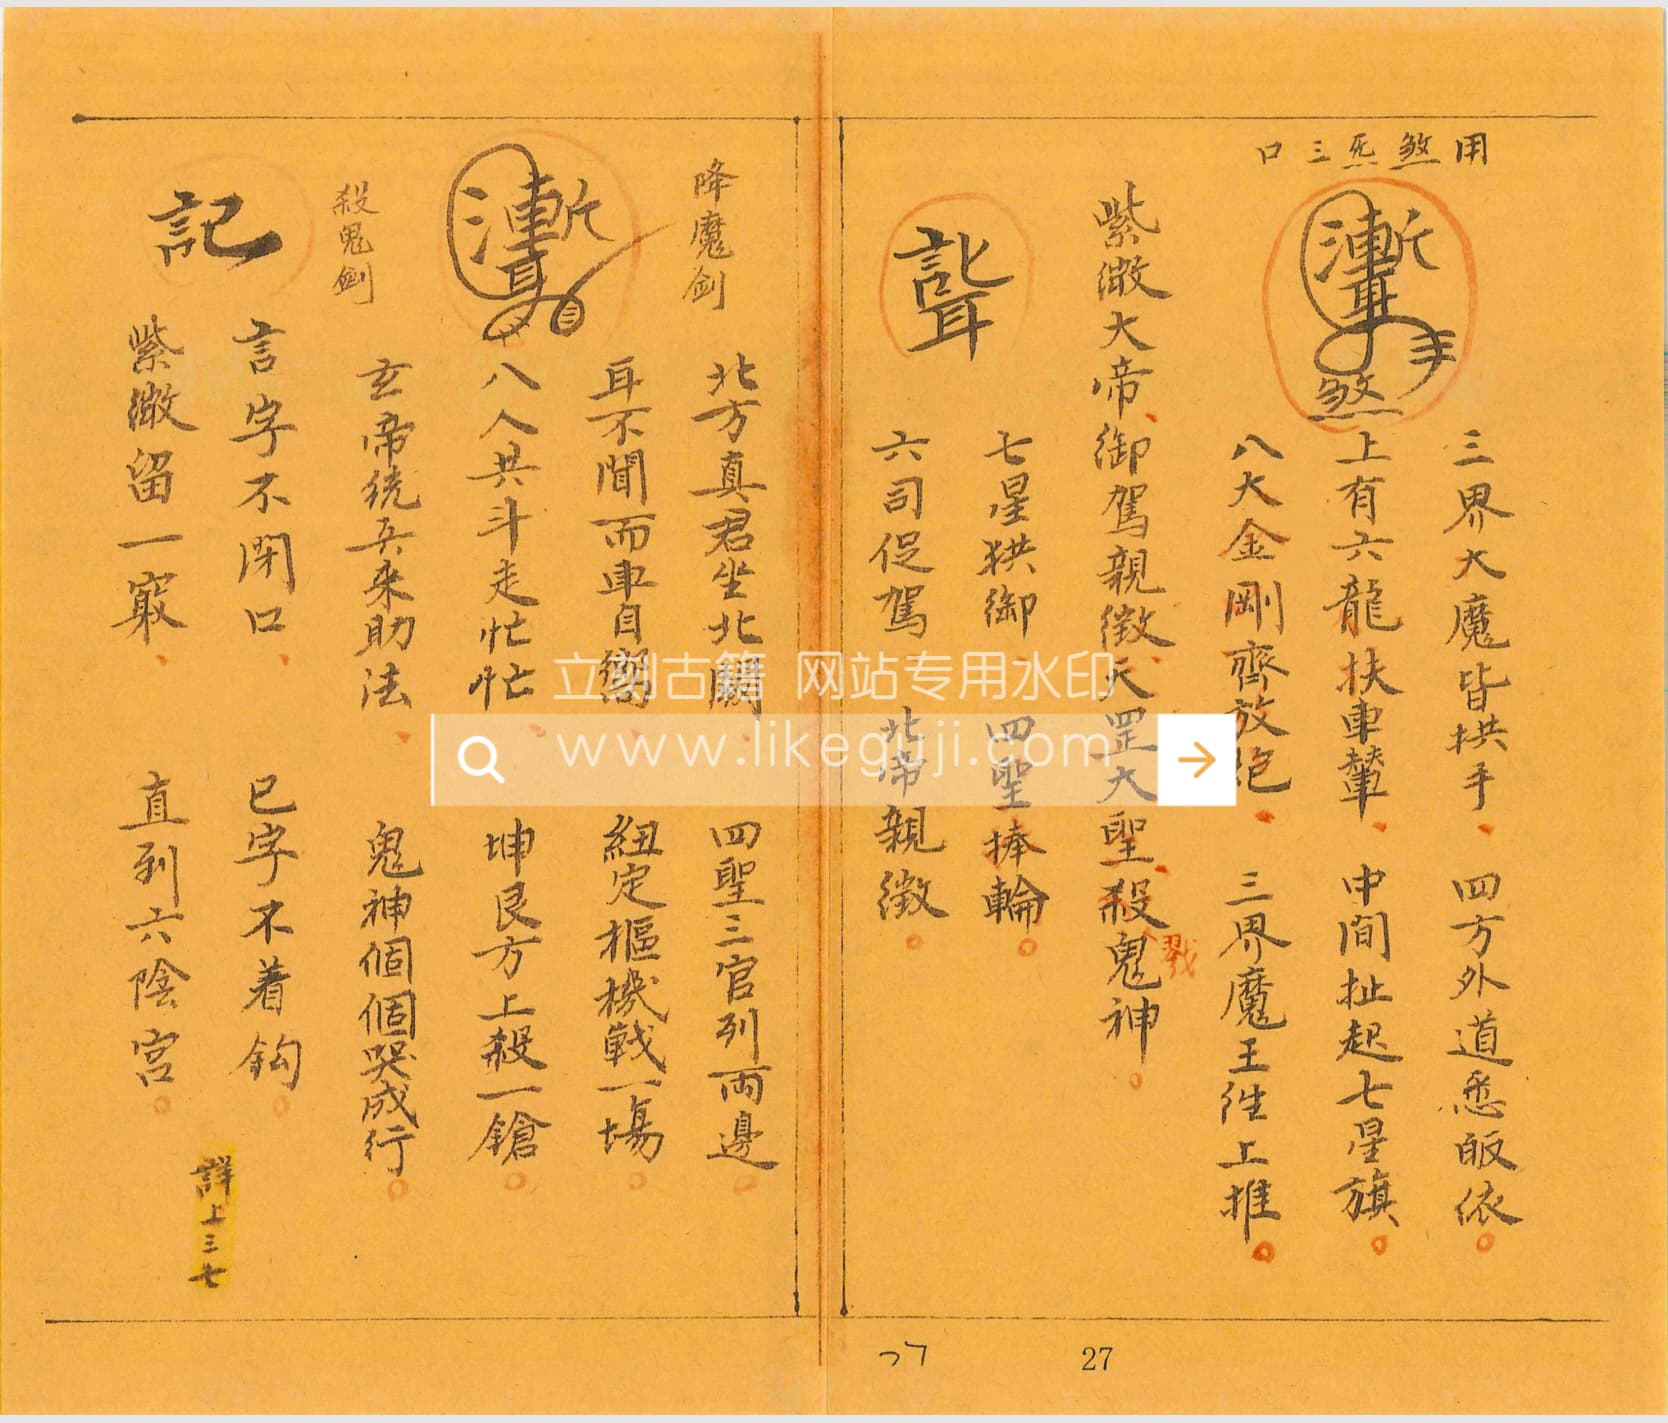 用煞炁三口
三界大魔皆拱手、四方外道悉皈依。
上有六龍扶車輦、中間扯起七星旗。
八大金剛齊放炮、三界魔王往上推。
紫微大帝、御駕親徵、天罡大聖、殺鬼神。
戮
七星拱御、四聖捧輪。
六司促駕、北帝親徵。
降魔劍
北方真君坐北關、四聖三官列両邊。
耳不聞而車自響、紐定樞機戰一場。
八人共斗走忙忙、坤艮方上殺一鎗。
玄帝統兵來助法、鬼神個個哭成行。
殺鬼劍
記
言字不閉口、已字不着鈎。
紫微留一竅、直到六陰宮。
詳上三七
27
立刻古籍 网站专用水印
www.likeguji.com